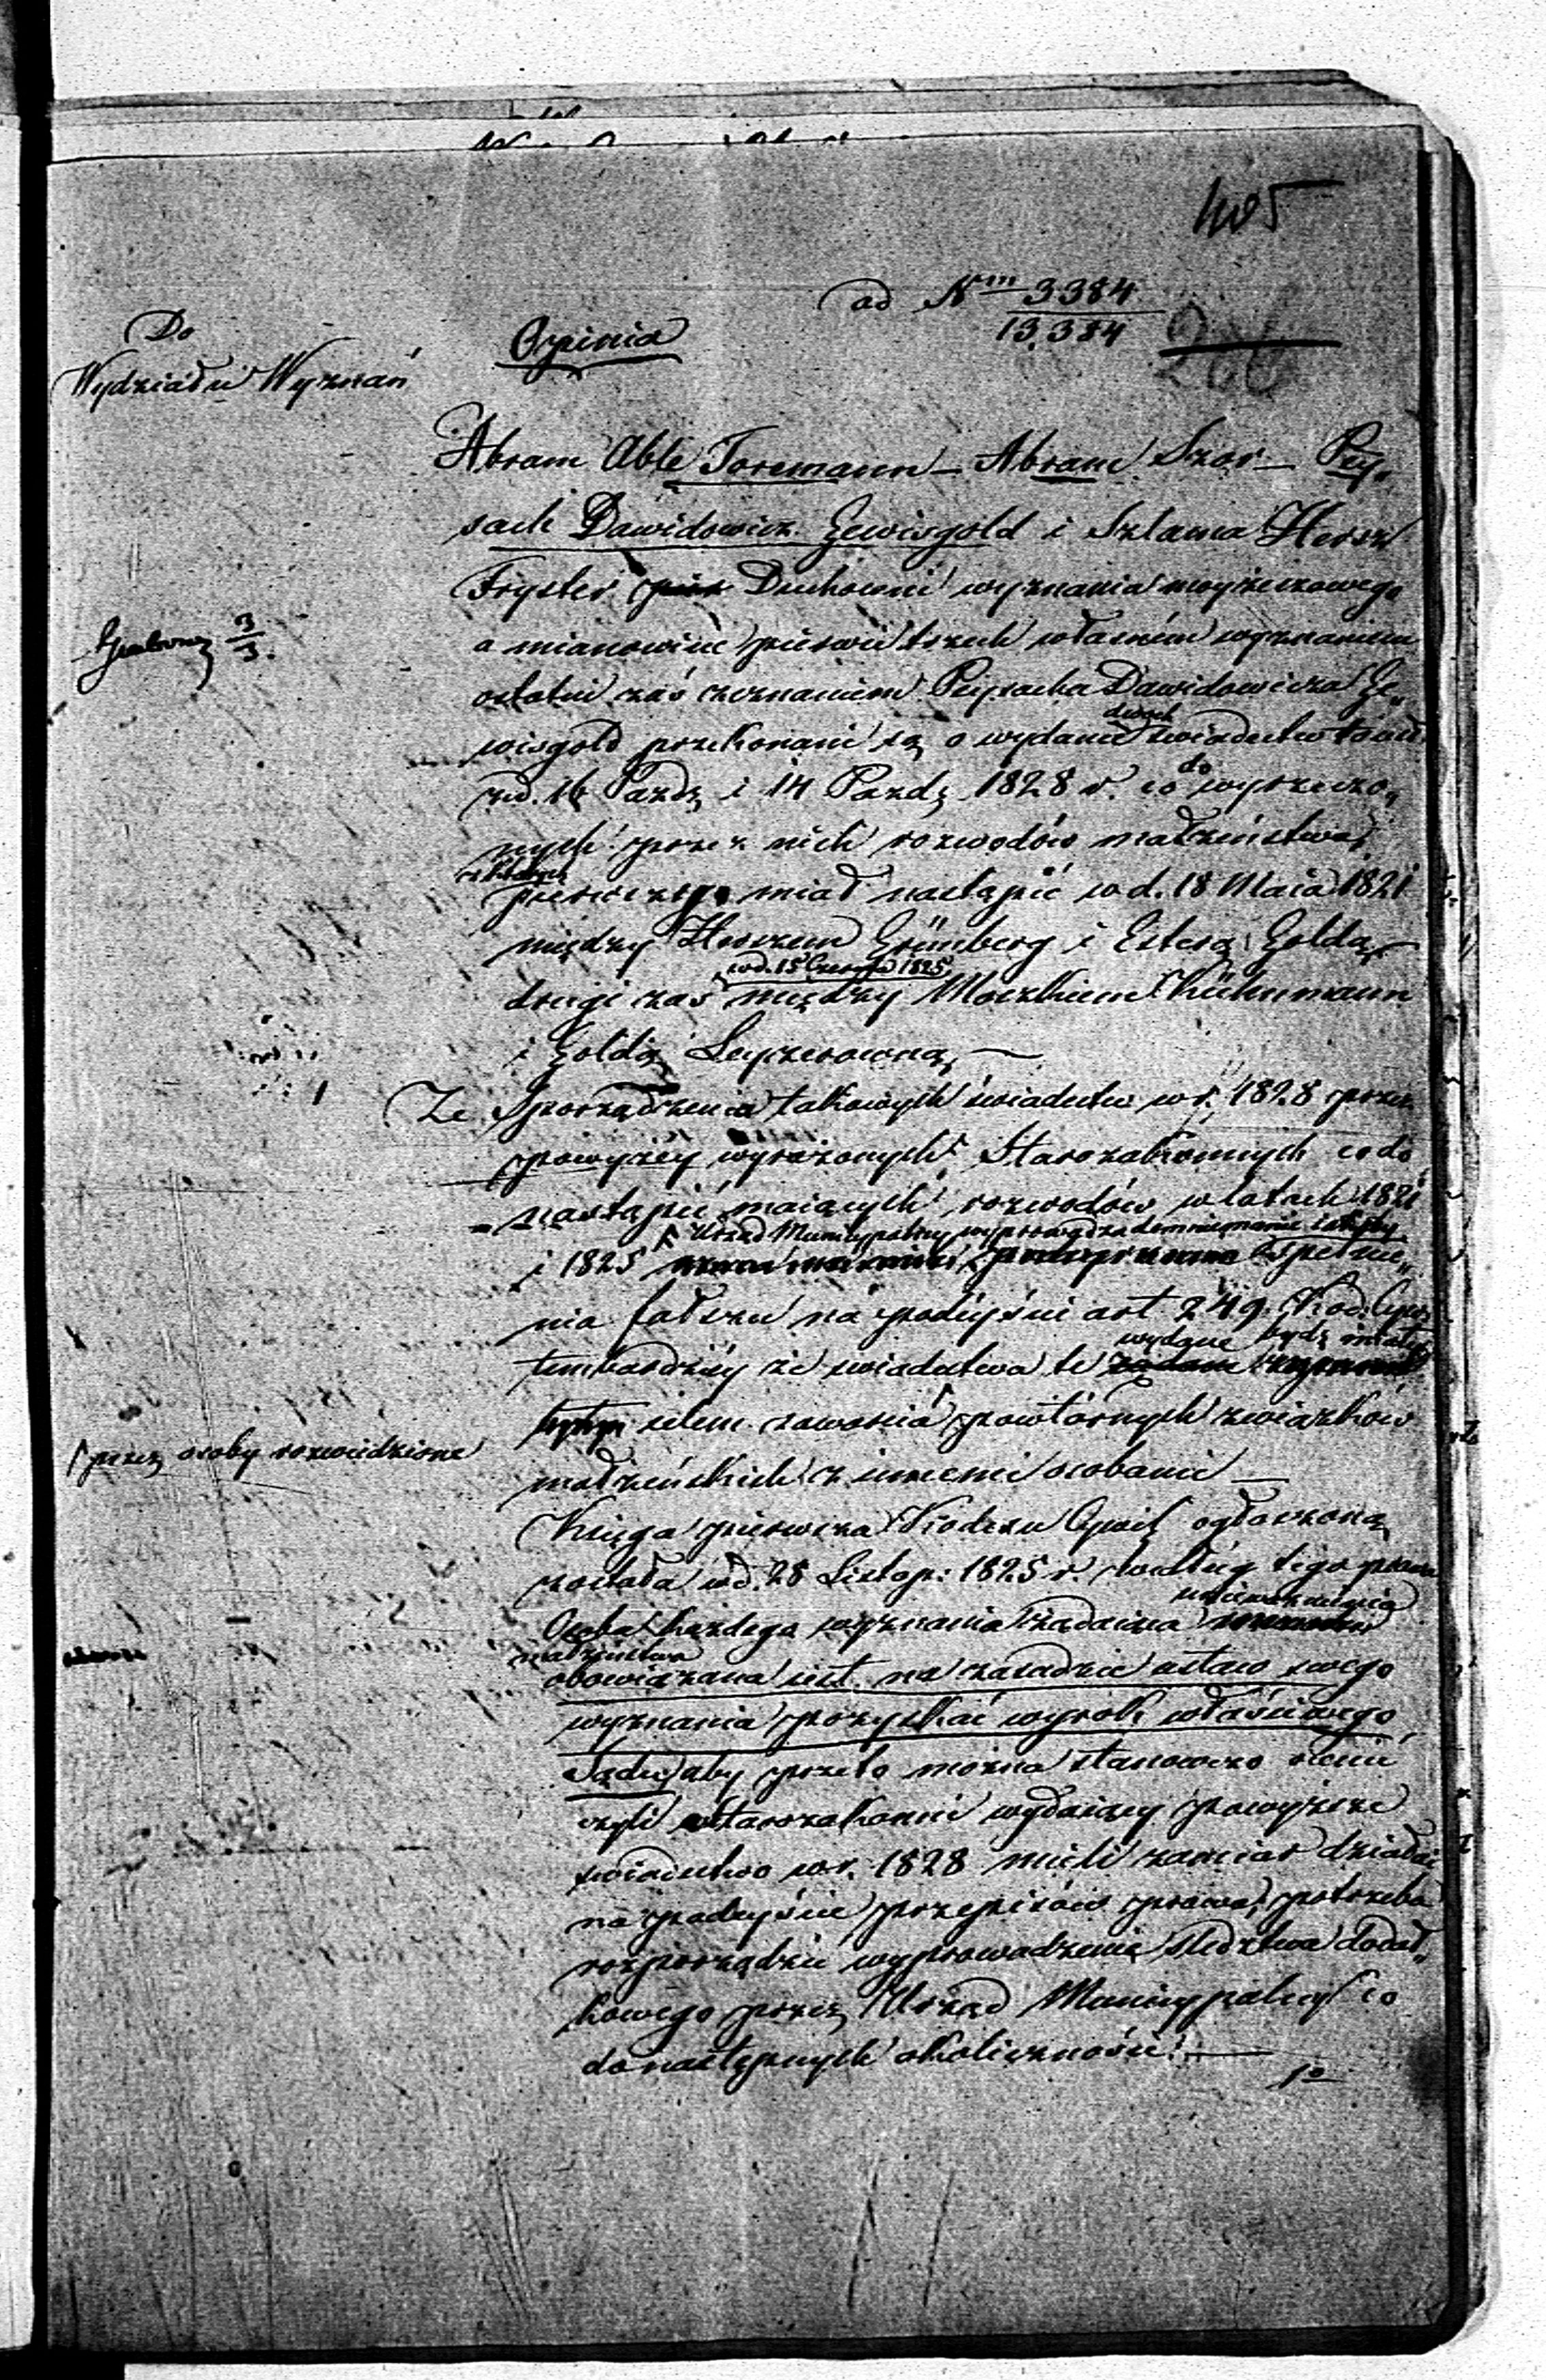 405
ad Nm 3384
13,384
266
Do
Wydziału Wyznań
Opinia
Abram Able Toremann – Abram Szor – Pey„
sach Dawidowicz Gewisgold i Szlama Hersz
Fryster Duchowni wyznania moyżeszowego
a mianowicie pierwsi trzech własnem wyznaniem
3/3.
ostatni zaś zeznaniem Peysacha Dawidowicza Ge„
wisgold przekonani są o wydanie dwóch świadectw
w d. 16 Paźdz i 14 Paźdz 1828 r. co do wyrzeczo„
nych przez nich rozwodów małżeństwa,
z których
pierwszy miał nastąpić w d. 18 Maia 1821
między Herszem Grünberg i Esterą Goldą
w d. 15 Czerwca 1825
drugi zaś między Moszkiem Kühnmann
i Goldą Leyzerowną, —
Ze sporządzenia takowych świadectw w r. 1828 przez
powyżey wyrażonych Starozakonnych co do
nastąpić maiących rozwodów w latach 1821
Urząd Municypalny wyprowadza domniemanie
i 1825 spełnie„
nia fałszu na podeyście art 249 Kod: Cyw:
wydane bydź miały
tembardziey że świadectwa te
celem zawarcia powtórnych związków
/ przez osoby rozwiedzione
małżeńskich z innemi osobami —
Księga pierwsza Kodexu Cywil ogłoszoną
została w d. 28 Listop: 1825 r. według tego prawa
unieważnienia
Osoba każdego wyznania żądaiąca
małżeństwa
obowiązana iest na zasadzie ustaw swego
wyznania pozyskać wyrok właściwego
Sądu, aby przeto można stanowczo ocenić
czyli Starozakonni wydaiący powyższe
świadectwo w r. 1828 mieli zamiar działać
na podeyście przepisów prawa, potrzeba
rozporządzić wyprowadzenie śledztwa dodat„
kowego przez Urząd Municypalny co
do następnych okoliczności: —
1o